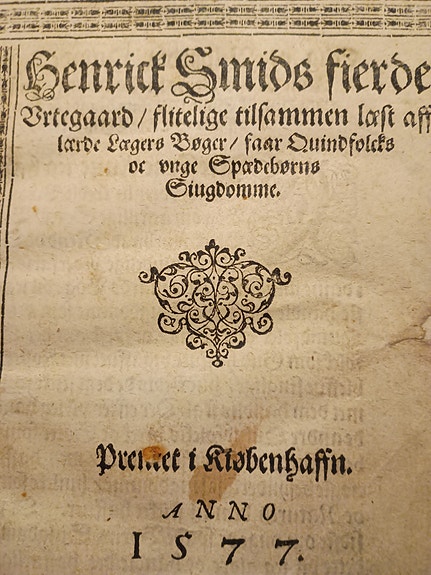 Henrick Smids fierde
Vrtegaard / flitelige tilsammen læst aff
lærde Lægers Bøger / faar Quindfolcks
oc vnge Spædebørns
Siugdomme.
Prentet i Kiøbenhaffn.
ANNO
1577.